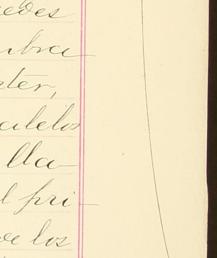 edes
mbra
ter,
alelos
lla
l pri
ve los